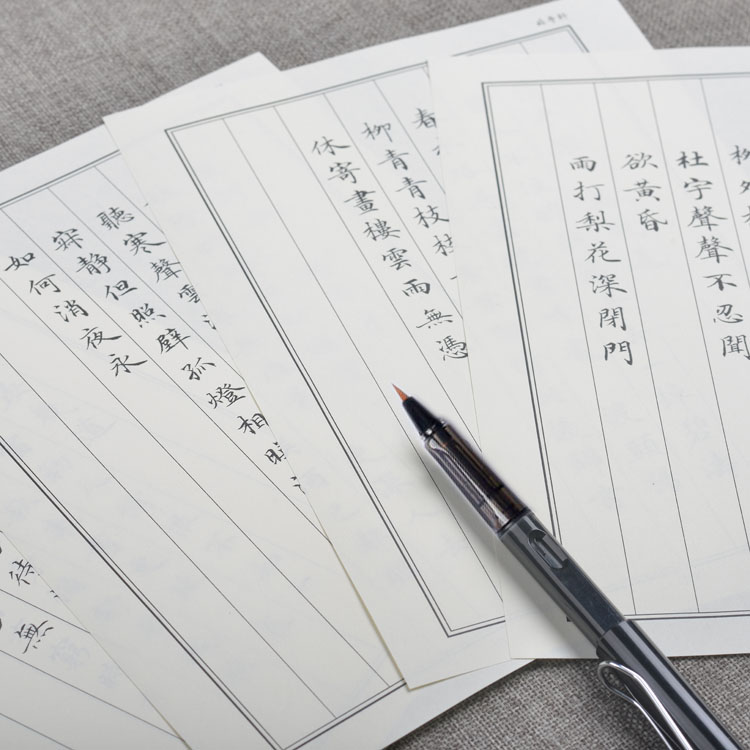 杜宇聲聲不忍聞
欲黃昏
雨打梨花深閉門
春
柳青青枝枝
休寄畫樓雲雨無憑
聽寒聲雲
寂靜但照壁孤燈相映
如何消夜永
待
無